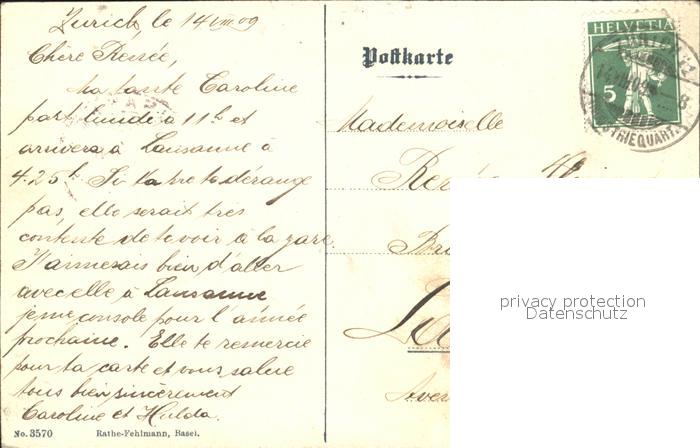 Zurich, le 14 VIII 09
Chère Renée,
ta tante Caroline
part lundi à 11h et
arrivera à Lausanne à
4.25h. Si ta ne te dérange
pas, elle serait tres
contente de te voir à la gare.
J'aimerais bien d'aller
avec elle à Lausanne
je me console pour l'année
prochaine. Elle te remercie
pour ta carte et vous salue
tous bien sincèrement
Caroline et Hulda.
No. 3570 Rathe-Fehlmann, Basel.
Postkarte
HELVETIA
5
Mademoiselle
Renée
privacy protection
Datenschutz